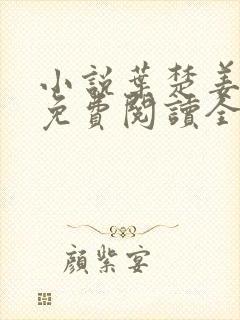 小說葉楚姜
免費閱讀全
顏紫宴